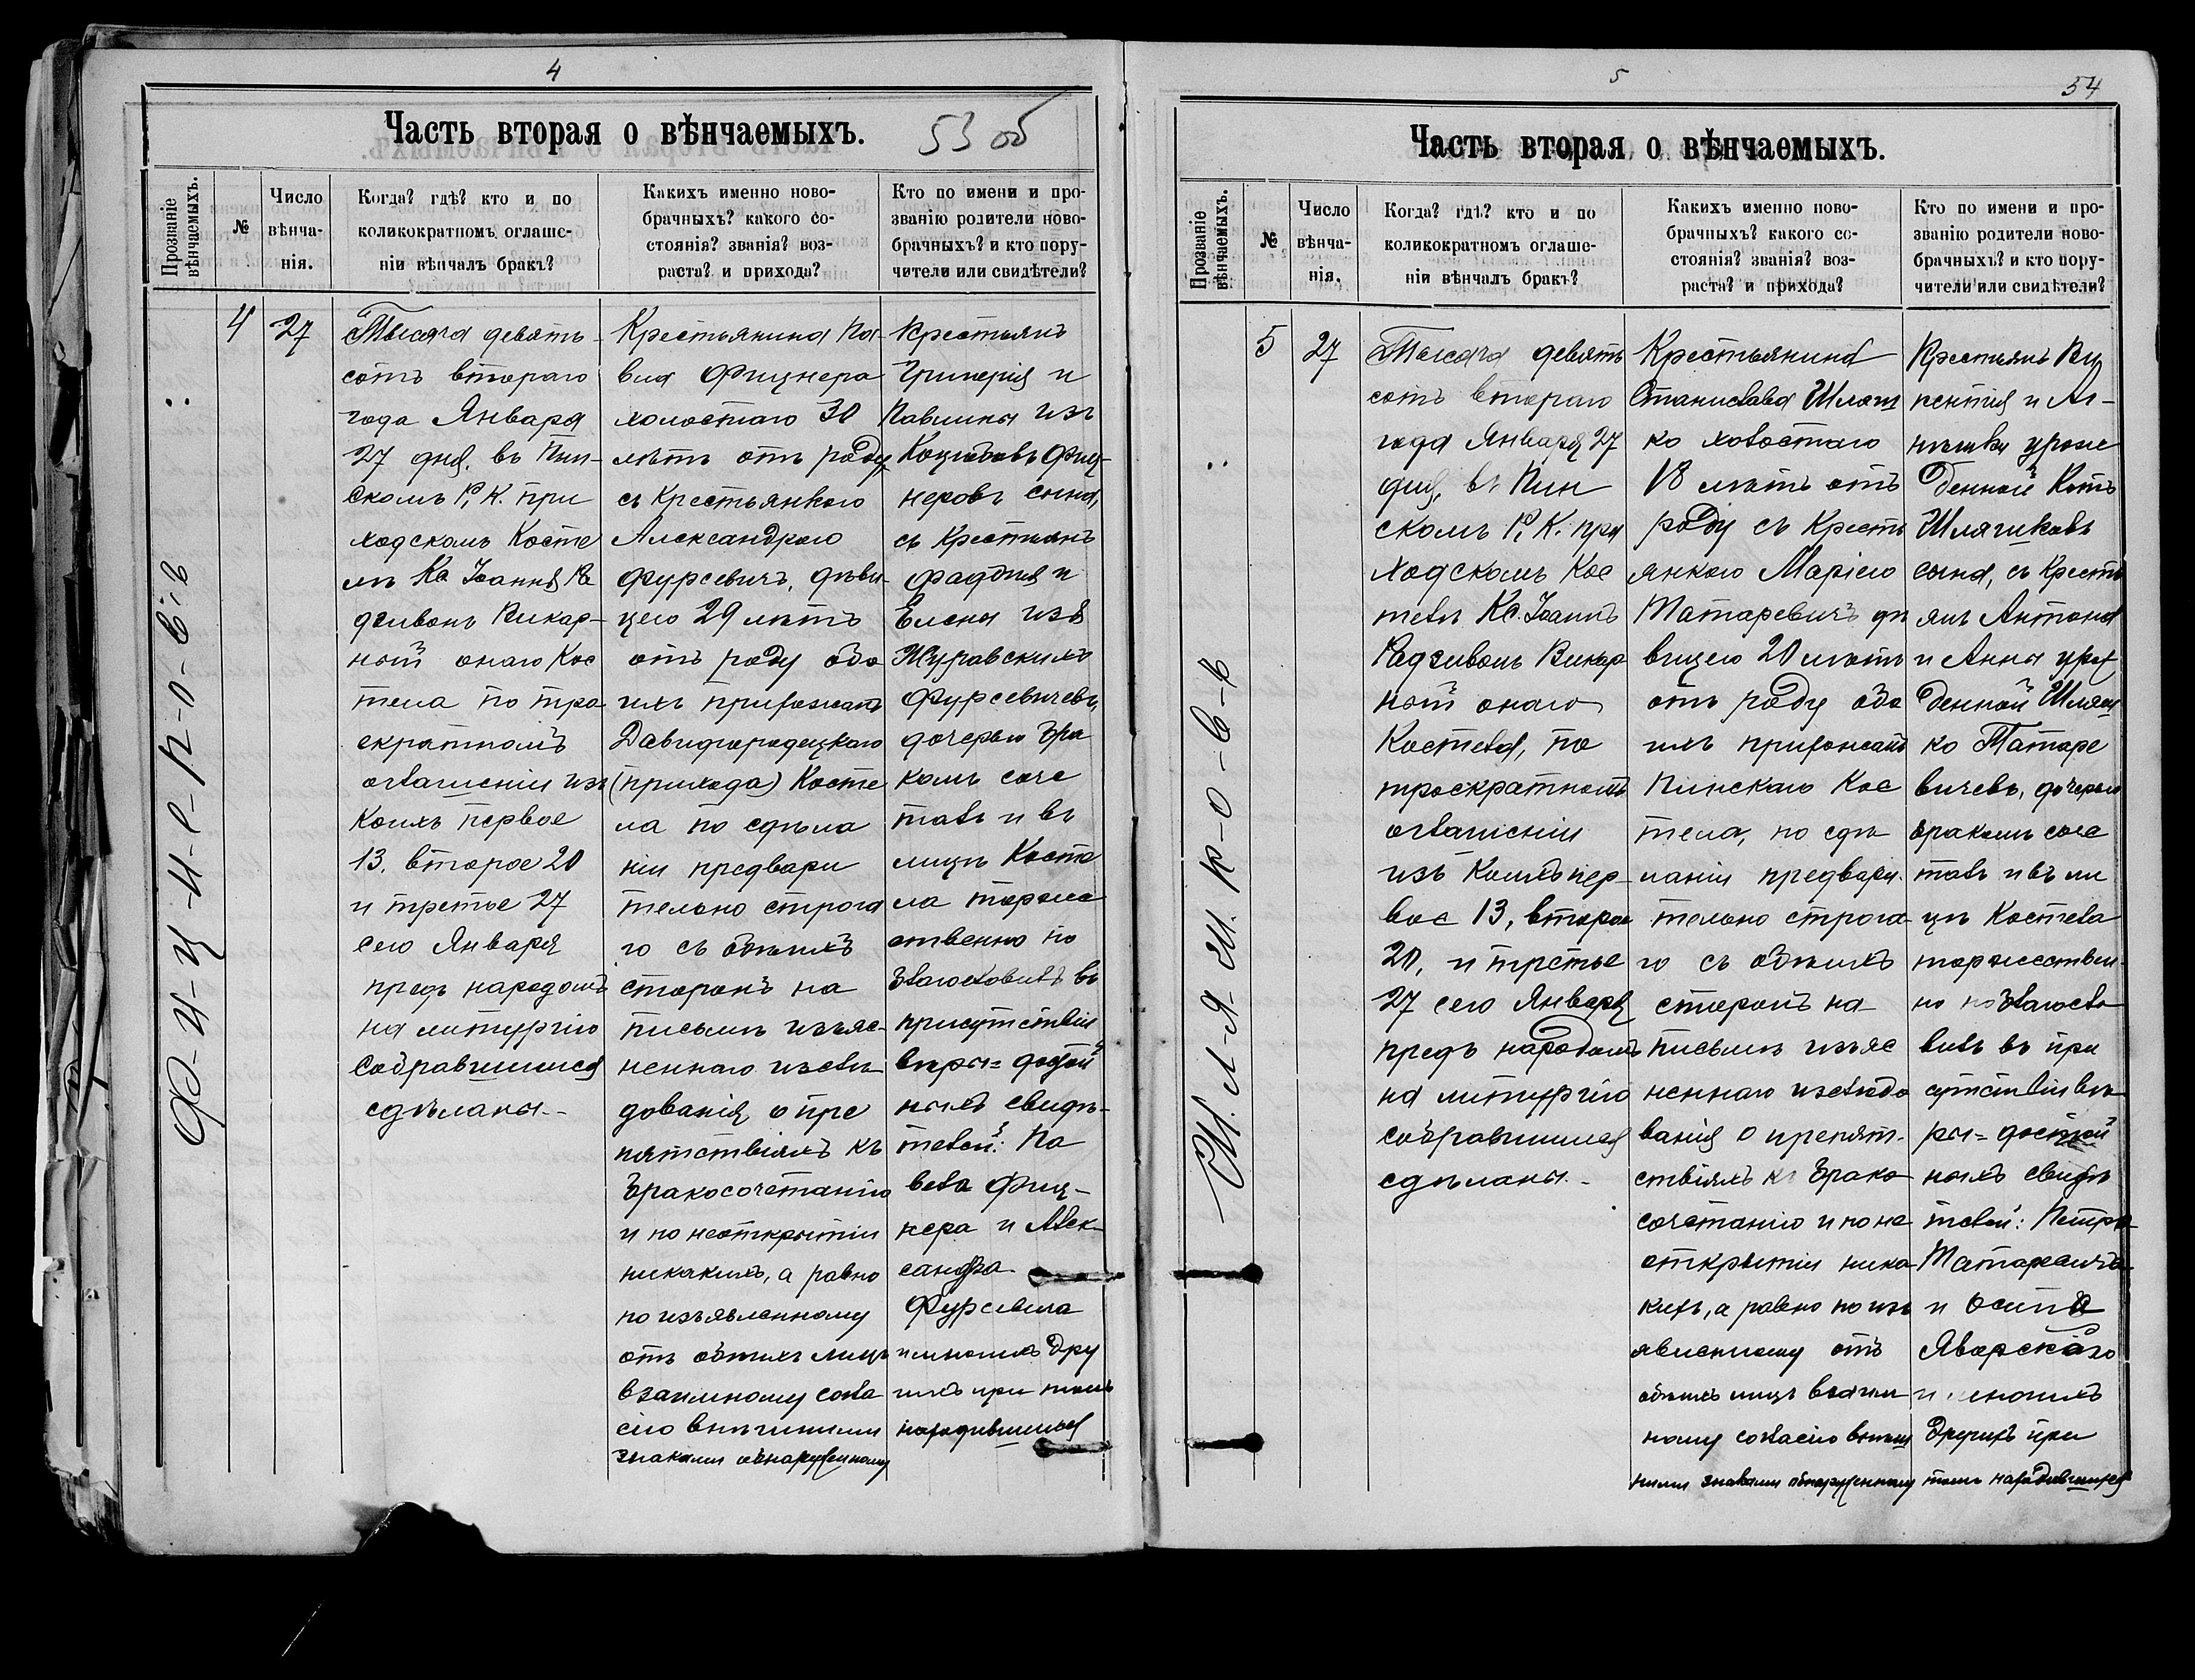 4
Часть вторая о вѣнчаемыхъ.
53 об
Прозваніе вѣнчаемыхъ.
№
Число вѣнча-нія.
Когда? гдѣ? кто и по
коликократномъ оглаше-
ніи вѣнчалъ бракъ?
Какихъ именно ново-
брачныхъ? какого со-
стоянія? званія? воз-
раста? и прихода?
Кто по имени и про-
званію родители ново-
брачныхъ? и кто пору-
чители или свидѣтели?
4
27
Тысяча девять-
сотъ втораго
года Января
27 дня, въ Пин-
скомъ Р. К. при
ходскомъ Косте
лѣ Кс. Іоаннъ Ра
дзивонъ Викар-
ный онаго Кос
тела по тро
екратномъ
оглашеніи изъ
коихъ первое
13, второе 20
и третье 27
сего Января
предъ народомъ
на литургію
собравшимся
сдѣланы.-
Крестьянина Па-
вла Фицнера
холостаго 30
лѣтъ отъ роду,
съ Крестьянкою
Александрою
Фурсевичъ, дѣви-
цею 29 лѣтъ
отъ роду обо
ихъ прихожанъ
Давидгородецкаго
(прихода) Косте
ла по сдѣла
ніи предвари
тельно строга
го съ обѣихъ
сторонъ на
письмѣ изъяс-
неннаго изслѣ
дованія о пре
пятствіяхъ къ
бракосочетанію
и по неоткрытіи
никакихъ, а равно
по изъявленному
отъ обѣихъ лицъ
взаимному согла
сію внѣшними
знаками обнаруженному
Крестьянъ
Григорія и
Павлины изъ
Фиц-
неровъ сына,
съ Крестьянъ
Фаддея и
Елены изъ
Журавскихъ
Фурсевичевъ,
дочерью бра
комъ соче
талъ и въ
лицѣ Косте
ла торже
ственно по
благословилъ въ
присутствіи
вѣры= достой
ныхъ свидѣ-
телей: Па
вла Фиц-
нера и Алек-
сандра
Фурсевича
и многихъ дру
гихъ при томъ
находившихся
Ф-и-ц-н-е-р-о-в-ъ
5
54
Часть вторая о вѣнчаемыхъ.
Прозваніе вѣнчаемыхъ.
№
Число вѣнча-нія.
Когда? гдѣ? кто и по
коликократномъ оглаше-
ніи вѣнчалъ бракъ?
Какихъ именно ново-
брачныхъ? какого со-
стоянія? званія? воз-
раста? и прихода?
Кто по имени и про-
званію родители ново-
брачныхъ? и кто пору-
чители или свидѣтели?
5
27
Тысяча девять
сотъ втораго
года Января 27
дня, въ Пин
скомъ Р. К. при
ходскомъ Кос
телѣ Кс. Іоаннъ
Радзивонъ Викар
ный онаго
Костела, по
троекратномъ
оглашеніи
изъ коихъ пер-
вое 13, второе
20, и третье
27 сего Января
предъ народомъ
на литургію
собравшимся
сдѣланы.-
Крестьянина
Станислава Шляш
ко холостаго
18 лѣтъ отъ
роду съ Кресть
янкою Маріею
Татаревичъ дѣ
вицею 20 лѣтъ
отъ роду обо
ихъ прихожанъ
Пинскаго Кос
тела, по сдѣ
ланіи предвари-
тельно строга
го съ обѣихъ
сторонъ на
письмѣ изъяс
неннаго изслѣдо
ванія о препят-
ствіяхъ къ брако
сочетанію и по не
открытіи ника
кихъ, а равно по изъ
явленному отъ
обѣихъ лицъ взаим
ному согласію внѣш
ними знаками обнаруженному
Крестьянъ Ви
кентія и Аг-
урож
денной Котъ
сына, съ Кресть
янъ Антона
и Анны урож
денной Шляш
ко Татаре
вичевъ, дочерью
бракомъ соче
талъ и въ ли
цѣ Костела
торжествен-
но поблагосло
вилъ въ при
сутствіи вѣ
ры= достой
ныхъ свидѣ
телей: Петра
Татаревича
и Осипа
Яворскаго
и многихъ
другихъ при
томъ находившихся
Ш-л-я-ш-к-о-в-ъ